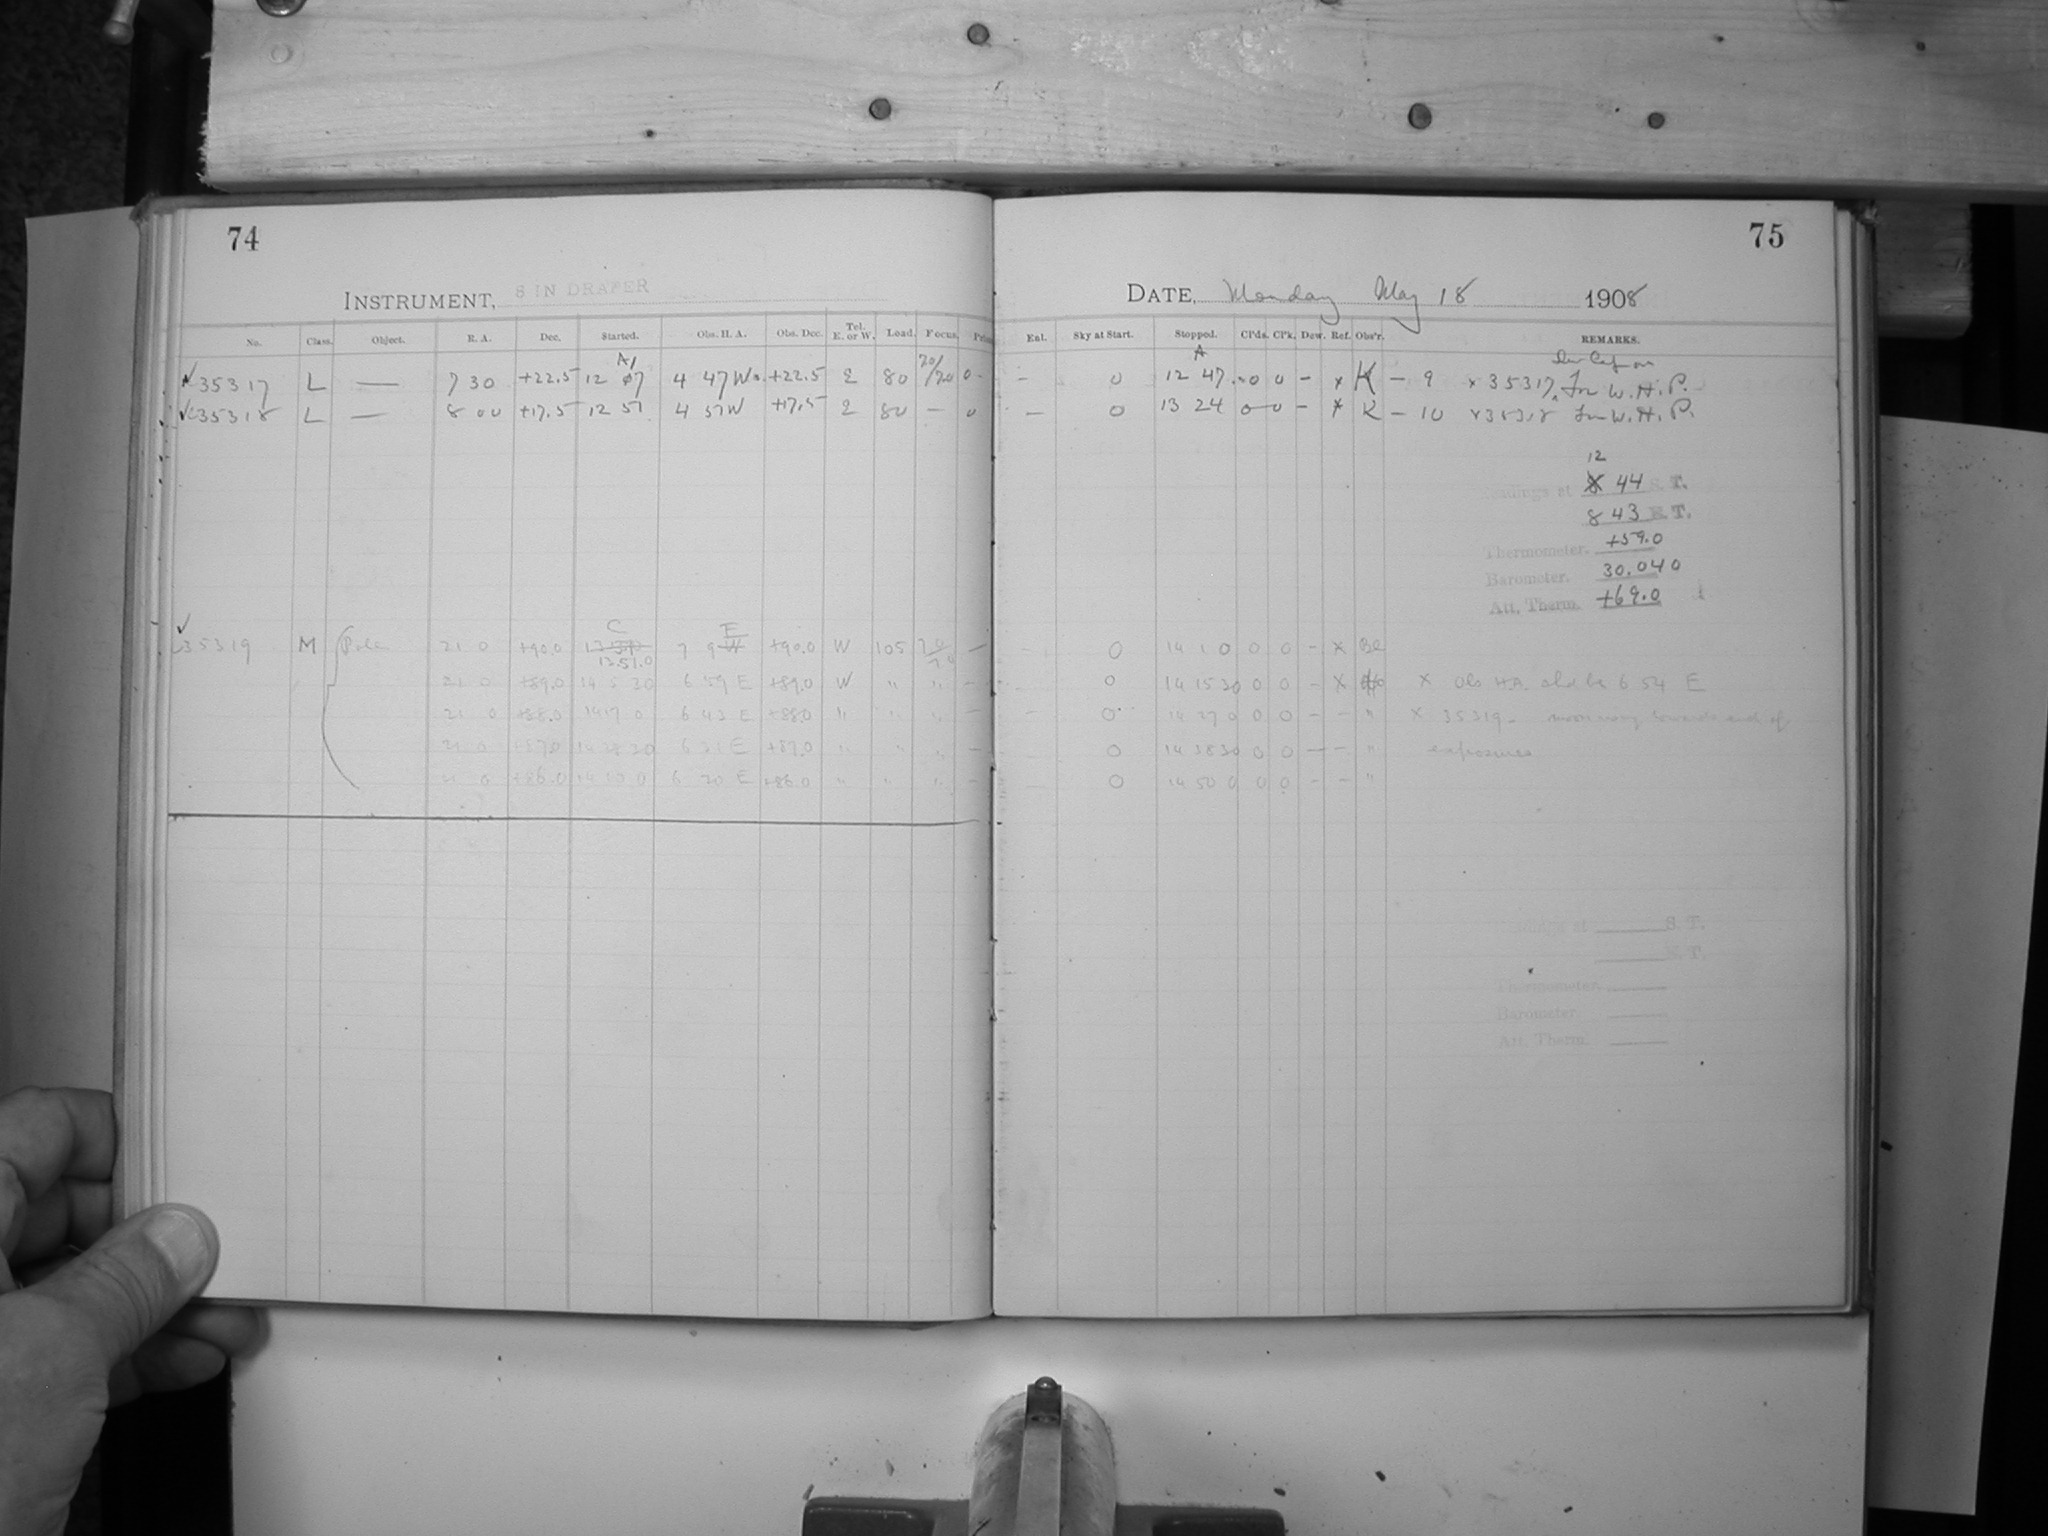 74
INSTRUMENT, 8 IN DRAPER
No. Class. Object. R. A. Dec. Started. Obs. H. A. Obs. Dec. Tel. E. or W. Load. Focus.
A
35317 L — 7 30 +22.5 12 07 4 47 W +22.5 E 80 20/20 0 -
35318 L — 8 00 +17.5 12 51 4 51 W +17.5 E 80 — 0
C E
35319 M Pole 21 0 +90.0 13.51.0 7 9 W +90.0 W 105 —
21 0 +89.0 14 5 30 6 59 E +89.0 W " " -
21 0 +88.0 14 17 0 6 43 E +88.0 " " " -
21 0 +87.0 14 28 30 6 31 E +87.0 " " "
21 0 +86.0 14 40 0 6 20 E +86.0 " " " -
75
DATE, Monday May 18 1908
Ent. Sky at Start. Stopped. Cl'ds. Cl'k. Dew. Ref. Obs'r. REMARKS.
A
— 0 12 47 0 0 — x K — 9 x 35317 For W. H. P.
— 0 13 24 0 0 — x K — 10 x 35318 For W. H. P.
12
Readings at 8 44 S. T.
8 43 E. T.
Thermometer. +59.0
Barometer. 30.040
Att. Therm. +69.0
0 14 1 0 0 0 - x
0 14 15 30 0 0 - x x Obs H.A. 6 54 E
— 0 14 27 0 0 0 - - " x 35319 - moon towards end of
0 14 38 30 0 0 — - " exposures
— 0 14 50 0 0 0 - - "
Readings at S. T.
E. T.
Thermometer.
Barometer
Att. Therm.